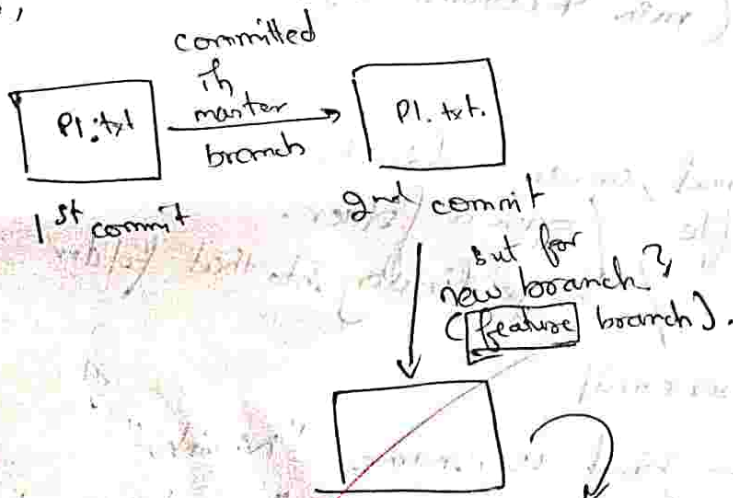 committed
in
master
branch
P1.txt
P1.txt.
1st commit
2nd commit
But for
new branch?
(feature branch).